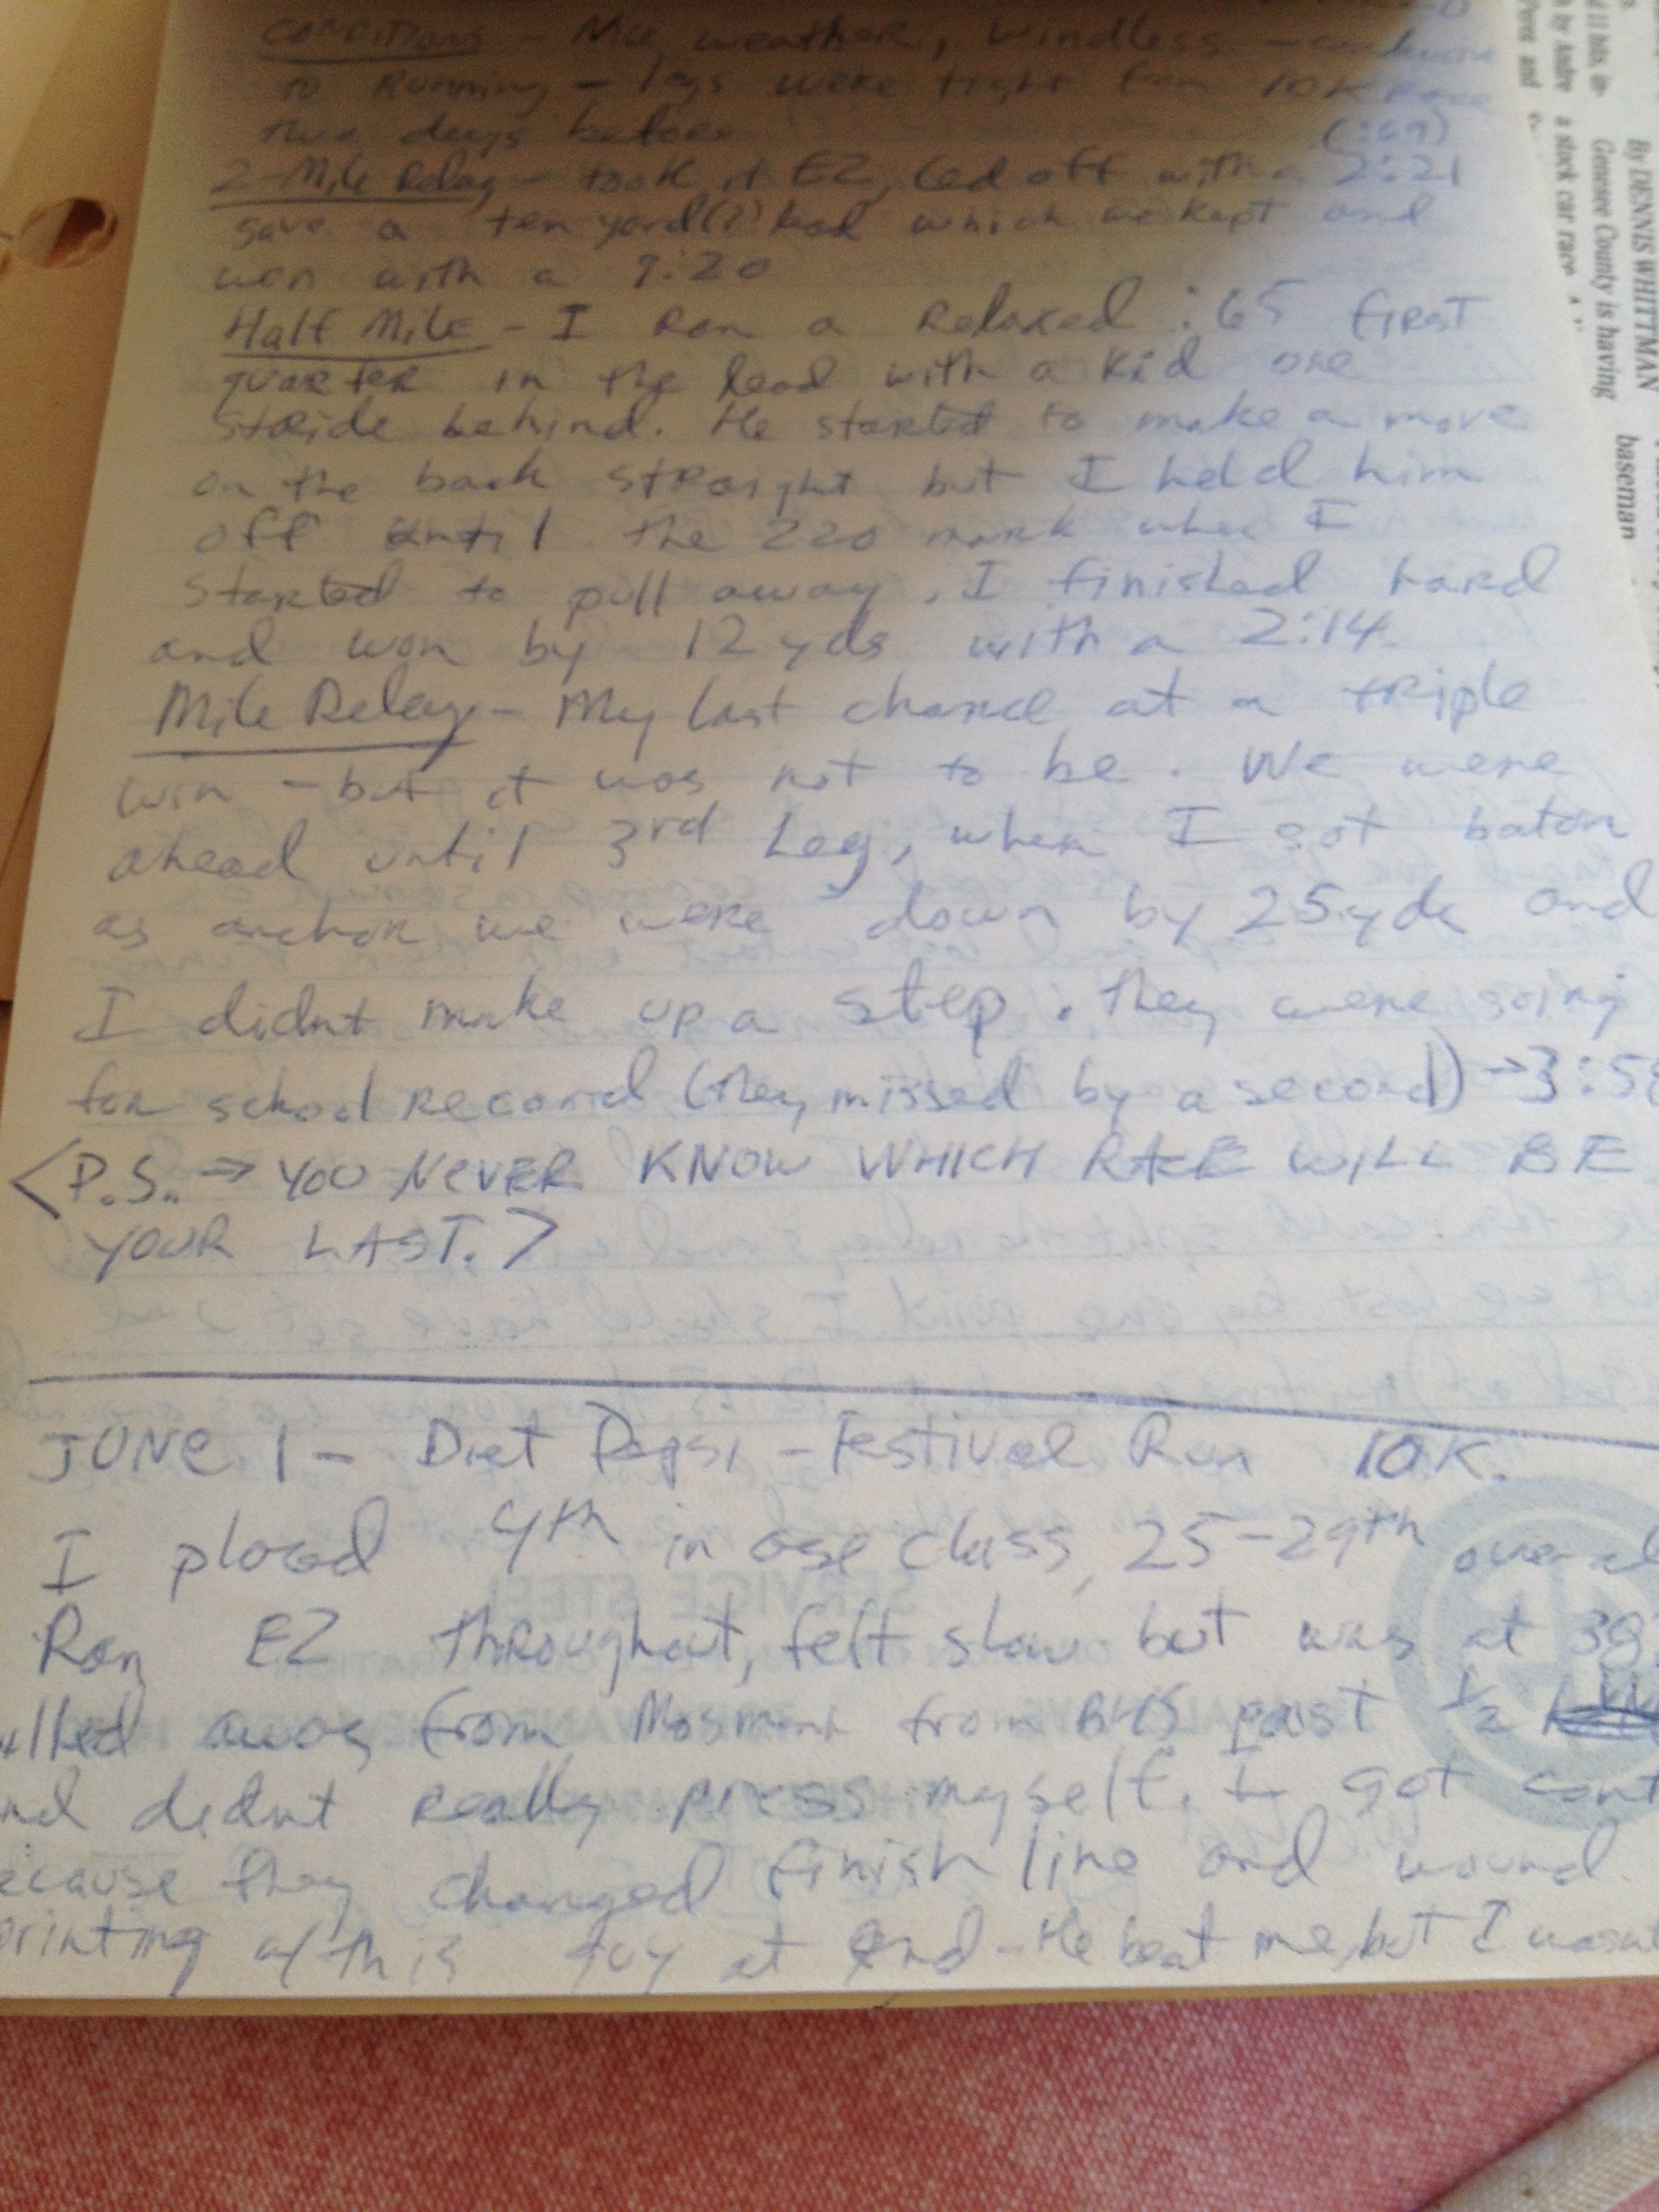 Conditions - Nice weather, windless -
to Running - legs were tight from 10K Race
two days before (:69)
2-Mile Relay - took it EZ, led off with a 2:21
gave a ten yard(?) lead which we kept and
won with a 9:20
Half Mile - I Ran a Relaxed :65 first
quarter in the lead with a kid one
stride behind. He started to make a move
on the back straight but I held him
off until the 220 mark when I
started to pull away. I finished hard
and won by 12 yds with a 2:14.
Mile Relay - My last chance at a triple
win - but it was not to be. We were
ahead until 3rd Leg, when I got baton
as anchor we were down by 25 yds and
I didnt make up a step. they were going
for school record (they missed by a second) → 3:58
<P.S. → YOU NEVER KNOW WHICH RACE WILL BE
YOUR LAST.>
JUNE 1 - Diet Pepsi - Festival Run 10K.
I placed 4th in age class, 25-29th overal
Ran EZ throughout, felt slow but was at 38:
lled away from from BHS past 1/2
nd didnt really press myself. I got
ecause they changed finish line and wound
printing w/ this guy at end - He beat me, but I wasnt
By DENNIS WHITTMAN
Genesee County is having
a stock car race
baseman
by Andre
Perez and